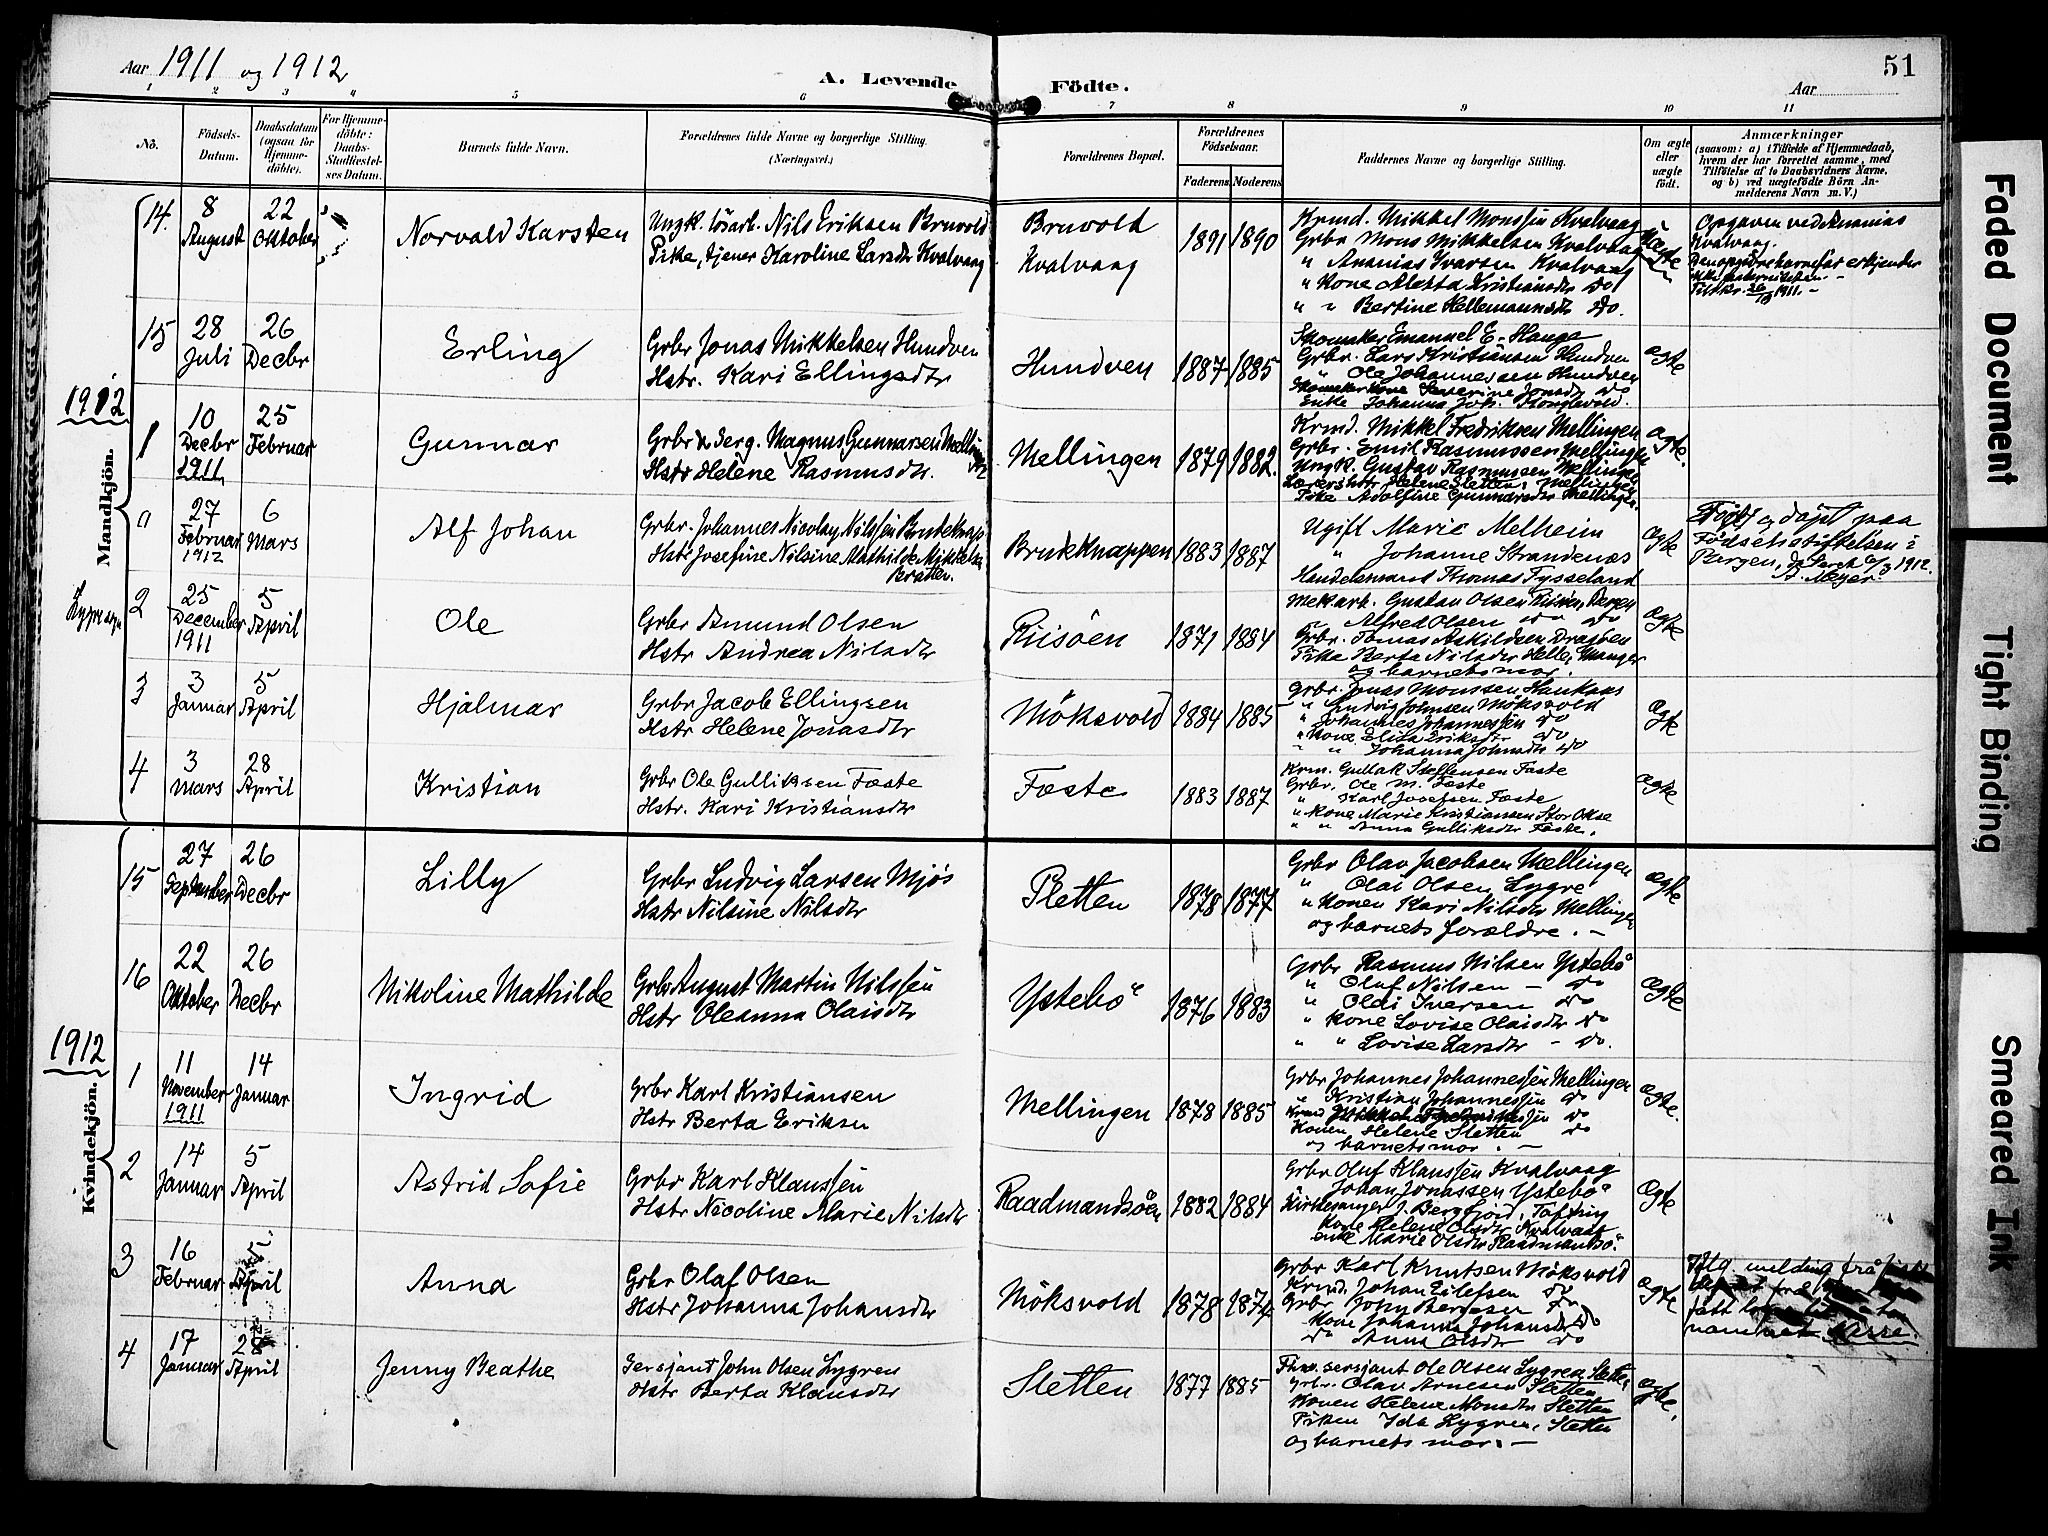 Aar 1911 og 1912
A. Levende Födte.
Aar
51
1 2 3 4 5 6 7 8 9 10 11
No.
Födsels-Datum.
Daabsdatum (ogsaa for Hjemme-döbte).
For Hjemme-döbte: Daabs-Stadfæstel-ses Datum.
Barnets fulde Navn.
Forældrenes fulde Navne og borgerlige Stilling. (Næringsvei.)
Forældrenes Bopæl.
Forældrenes Födselsaar.
Faderens Moderens
Faddernes Navne og borgerlige Stilling.
Om ægte eller uægte födt.
Anmærkninger
(saasom: a) i Tilfælde af Hjemmedaab, hvem der har forrettet samme, med Tilföielse af to Daabsvidners Navne, og b) ved uægtefödte Börn An-melderens Navn m. V.)
Mandkjön.
14. 8 August 22 Oktober
Norvald Karsten
Ungk. lösarb. Nils Eriksen Bruvold
Pike, tjener Karoline Larsdtr Kvalvaag
Bruvold
Kvalvaag
1891 1890
Krmd. Mikkel Monssen Kvalvaag
Grbr Mons Mikkelsen Kvalvaag
" Ananias Ivarsen Kvalvaag
" Kone Aletta Kristiansdtr do
" " Bertine Hellemannsdtr do.
Opgaven ved Ananias
Kvalvaag.
15 28 Juli 26 Decbr
Erling
Grbr Jonas Mikkelsen Hundven
Hstr. Kari Ellingsdtr
Hundven
1887 1885
Skomaker Emanuel E. Hauge
Grbr. Lars Kristiansen Hundven
" Ole Johannessen Hundven
Skomakerkone Severine Jonsdtr do
Enke Johanna Joh.
ægte
1912
1 10 Decbr 1911 25 Februar
Gunnar
Grbr & Serg. Magnus Gunnarsen Mellingen
Hstr Helene Rasmusdtr.
Mellingen
1879 1882.
Krmd. Mikkel Fredriksen Mellingen
Grbr. Emil Rasmussen Mellingen
Ungk. Gustav Rasmussen Mellingen
Lærershstr Helene Sletten, Mellingen
Pike Adolfine Gunnarsdtr Mellingen
ægte.
27 Februar 1912 6 Mars
Alf Johan
Grbr. Johannes Nicolay Nilssen Brudeknap
Hstr Josefine Nilsine Mathilde Mikkelsen
Bratten.
Brudeknappen
1883 1887
Ugift Marie Melheim
" Johanne Strandenæs
Handelsmand Thomas Fysseland
ægte
Födt og döpt paa
Födselsstiftelsen i
Bergen, 6/3 1912.
Meyer.
Lygre sogn
2 25 December 1911 5 April
Ole
Grbr Amund Olsen
Hstr Andrea Nilsdtr
Riisöen
1871 1884
Mek arb. Gustav Olsen Riisöen, Bergen
" Alfred Olsen do do
Grbr. Tomas Askildsen Dragöen
Pike Berta Nilsdtr Helle, Manger
og barnets mor.
ægte
3 3 Januar 5 April
Hjalmar
Grbr Jacob Ellingsen
Hstr Helene Jonasdtr
Möksvold
1884 1885
Grbr. Jonas Monssen Haukaas
" Ludvig Johnsen Möksvold
" Johannes Johannessen do
" Kone Elisa Eriksdtr do
" " Johanna Johnsdtr do
ægte
4 3 Mars 28 April
Kristian
Grbr Ole Gulliksen Fæste
Hstr. Kari Kristiansdtr
Fæste
1883 1887
Krm. Gullak Steffensen Fæste
Grbr. Ole M. Fæste
" Karl Josefsen Fæste
" Kone Marie Kristiansen Stor Okse
" " Anna Gulliksdtr Fæste.
ægte
Kvindekjön.
15 27 September 26 Decbr
Lilly
Grbr Ludvig Larsen Mjös
Hstr Nilsine Nilsdtr
Sletten
1878 1877
Grbr Olav Jacobsen Mellingen
" Olai Olsen Lygre
" Konen Kari Nilsdtr Mellingen
og barnets forældre. -
ægte
16 22 Oktober 26 Decbr
Nikoline Mathilde
Grbr August Martin Nilssen
Hstr Oleanna Olaisdtr
Ystebö
1876 1883
Grbr Rasmus Nilsen Ystebö
" Oluf Nilsen - do
" Olai Iversen do
" Kone Lovise Olaisdtr do
" " Lovise Larsdtr - do.
ægte
1912
1 11 November 1911 14 Januar
Ingrid
Grbr Karl Kristiansen
Hstr Berta Eriksen
Mellingen
1878 1885
Grbr Johannes Johannessen Mellingen
" Kristian Johannessen do
Krmd Mikkel Fredriksen do
Konen Helene Sletten do
og barnets mor. -
ægte.
2 14 Januar 5 April
Astrid Sofie
Grbr Karl Klaussen
Hstr Nicoline Marie Nilsdtr
Raadmandsöen
1882 1884
Grbr Oluf Klaussen Kvalvaag
" Johan Jonassen Ystebö
Kirkesanger J. Bergfjord,
Kone Helene Olsdtr Kvalvaag
enke Marie Olsdtr Raadmandsö.
ægte
3 16 Februar 5 April
Anna
Grbr Olaf Olsen
Hstr Johanna Johansdtr
Möksvold
1878 1874
Grbr Karl Knutsen Möksvold
Krmd. Johan Eilefsen do
Grbr John Bergesen do
Kone Johanna Johansdtr do
do Anna Olsdtr do
ægte
Iflg. melding frå
fått
namnet
4 17 Januar 28 April
Jenny Beathe
Sersjant John Olsen Lygren
Hstr Berta Klausdtr
Sletten
1877 1885
Fhv. sersjant Ole Olsen Lygren Sletten
Grbr. Olav Arnesen Sletten
Konen Helene Monsdtr Sletten
Piken Ida Lygren, Sletten
og barnets mor. -
ægte.
Faded Document
Tight Binding
Smeared Ink